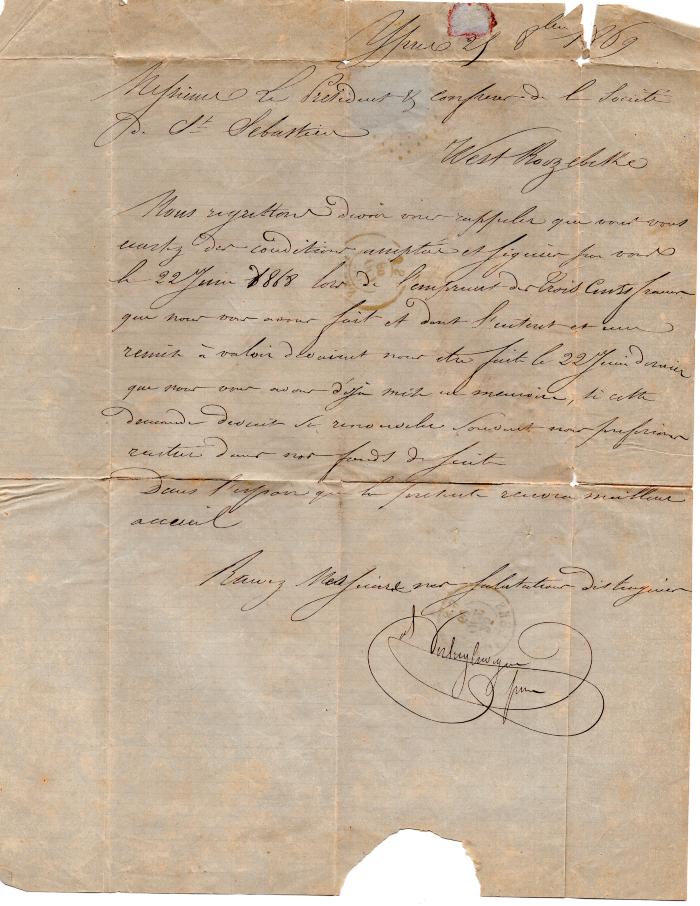 Ypres 25 8bre 1869
Messieurs Le Président & confreres de la Société
De St Sebastien
West Roozebeke
Nous regrettons devoir vous rappeler que vous vous
des conditions acceptée et signées par vous
le 22 Juin 1868 lors de l'emprunt de Trois Cents francs
que nous vous avons fait et dont l'interet et une
remise à valoir devaient nous etre fait le 22 Juin dernier
que nous vous avons déja mis en memoire, si cette
demande devait se renouveler souvent nous
rentrer dans nos fonds de suite
Dans l'espoir que la presente recevra meilleur
acceuil
Recevez Messieurs nos salutations distinguées
Ypres